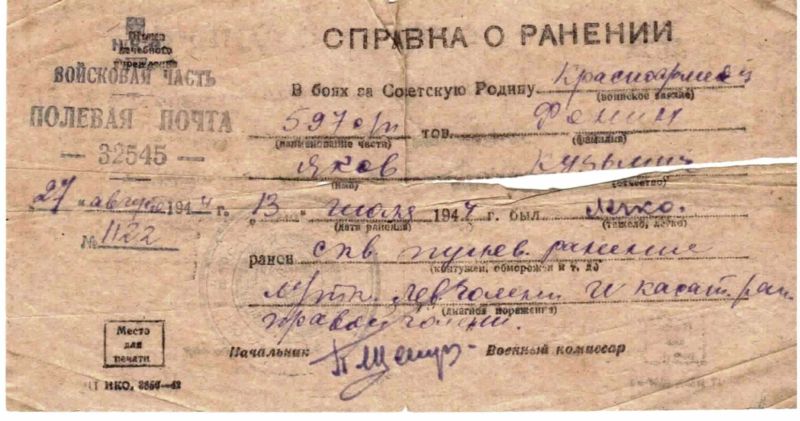 СПРАВКА О РАНЕНИИ
Штамп
лечебного
учреждения
ВОЙСКОВАЯ ЧАСТЬ
ПОЛЕВАЯ ПОЧТА
— 32545 —
В боях за Советскую Родину Красноармеец
(воинское звание)
597 с/п тов. Фонин
(наименование части) (фамилия)
Яков Кузьмич
(имя) (отчество)
27 "августа 1944 г.
№ 1122
"13" июля 1944 г. был легко.
(дата ранения) (тяжело, легко)
ранен скв. пулев. ранение
(контужен, обморожен и т. д.)
м/тк. лев голени и касат. ран.
правой голени.
(диагноз поражения)
Место
для
печати
Начальник Военный комиссар